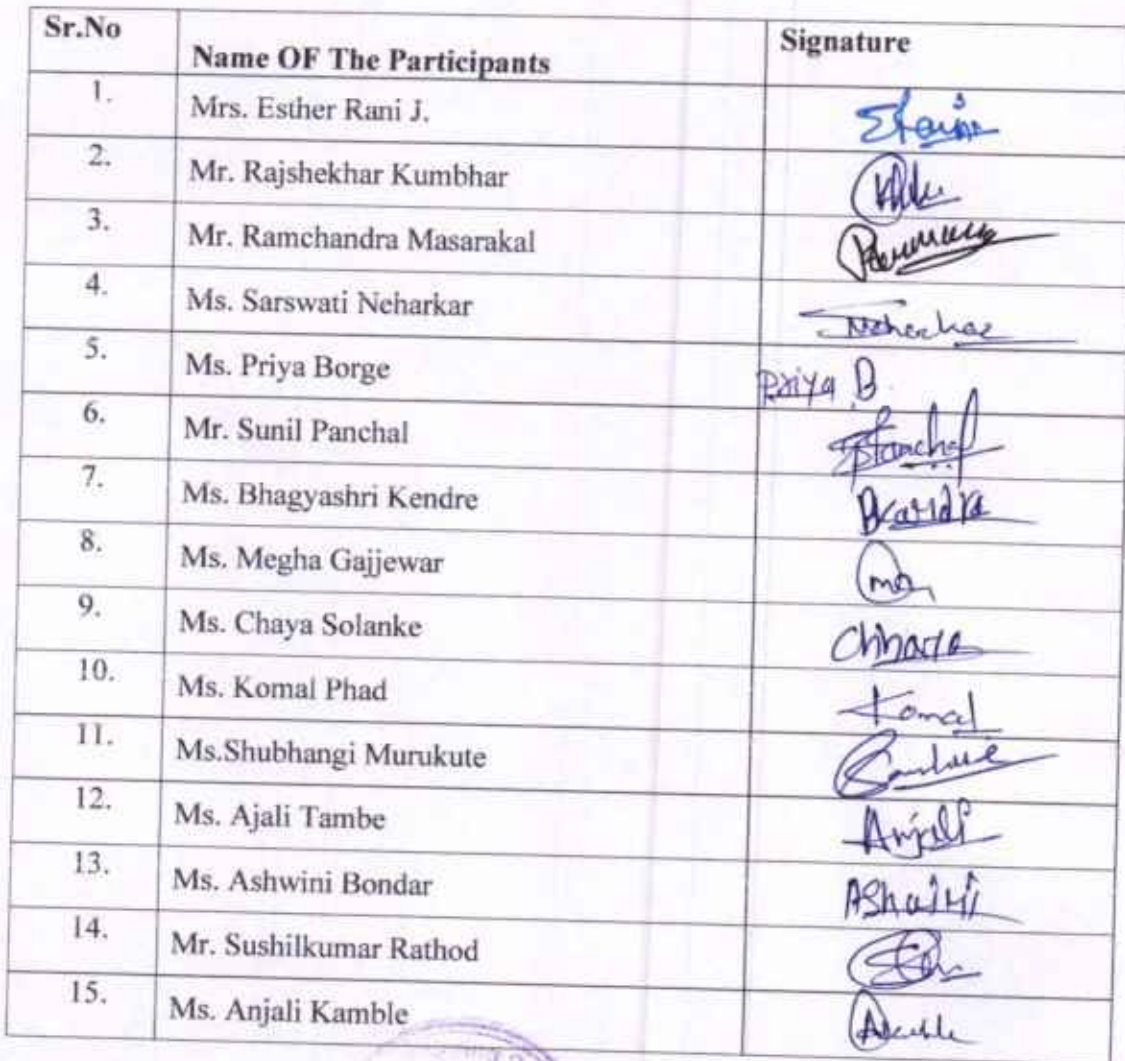 Sr.No Name OF The Participants Signature
1. Mrs. Esther Rani J.
2. Mr. Rajshekhar Kumbhar
3. Mr. Ramchandra Masarakal
4. Ms. Sarswati Neharkar Neharkar
5. Ms. Priya Borge Priya B.
6. Mr. Sunil Panchal Panchal
7. Ms. Bhagyashri Kendre
8. Ms. Megha Gajjewar
9. Ms. Chaya Solanke Chhaya
10. Ms. Komal Phad Komal
11. Ms.Shubhangi Murukute
12. Ms. Ajali Tambe Anjali
13. Ms. Ashwini Bondar
14. Mr. Sushilkumar Rathod
15. Ms. Anjali Kamble